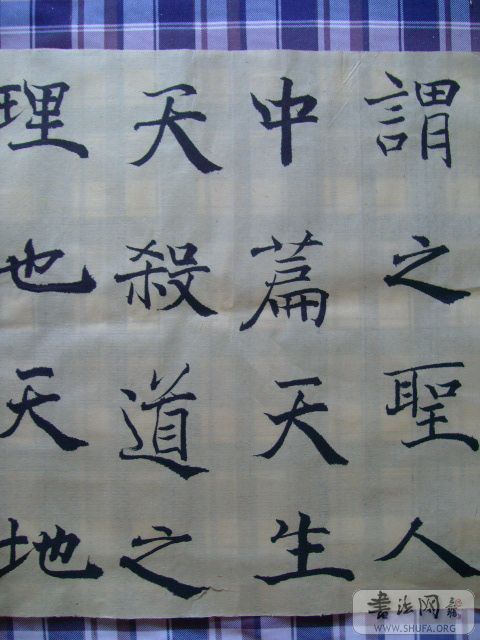 謂之聖人
中篇天生
天殺道之
理也天地
書法网
WWW.SHUFA.ORG